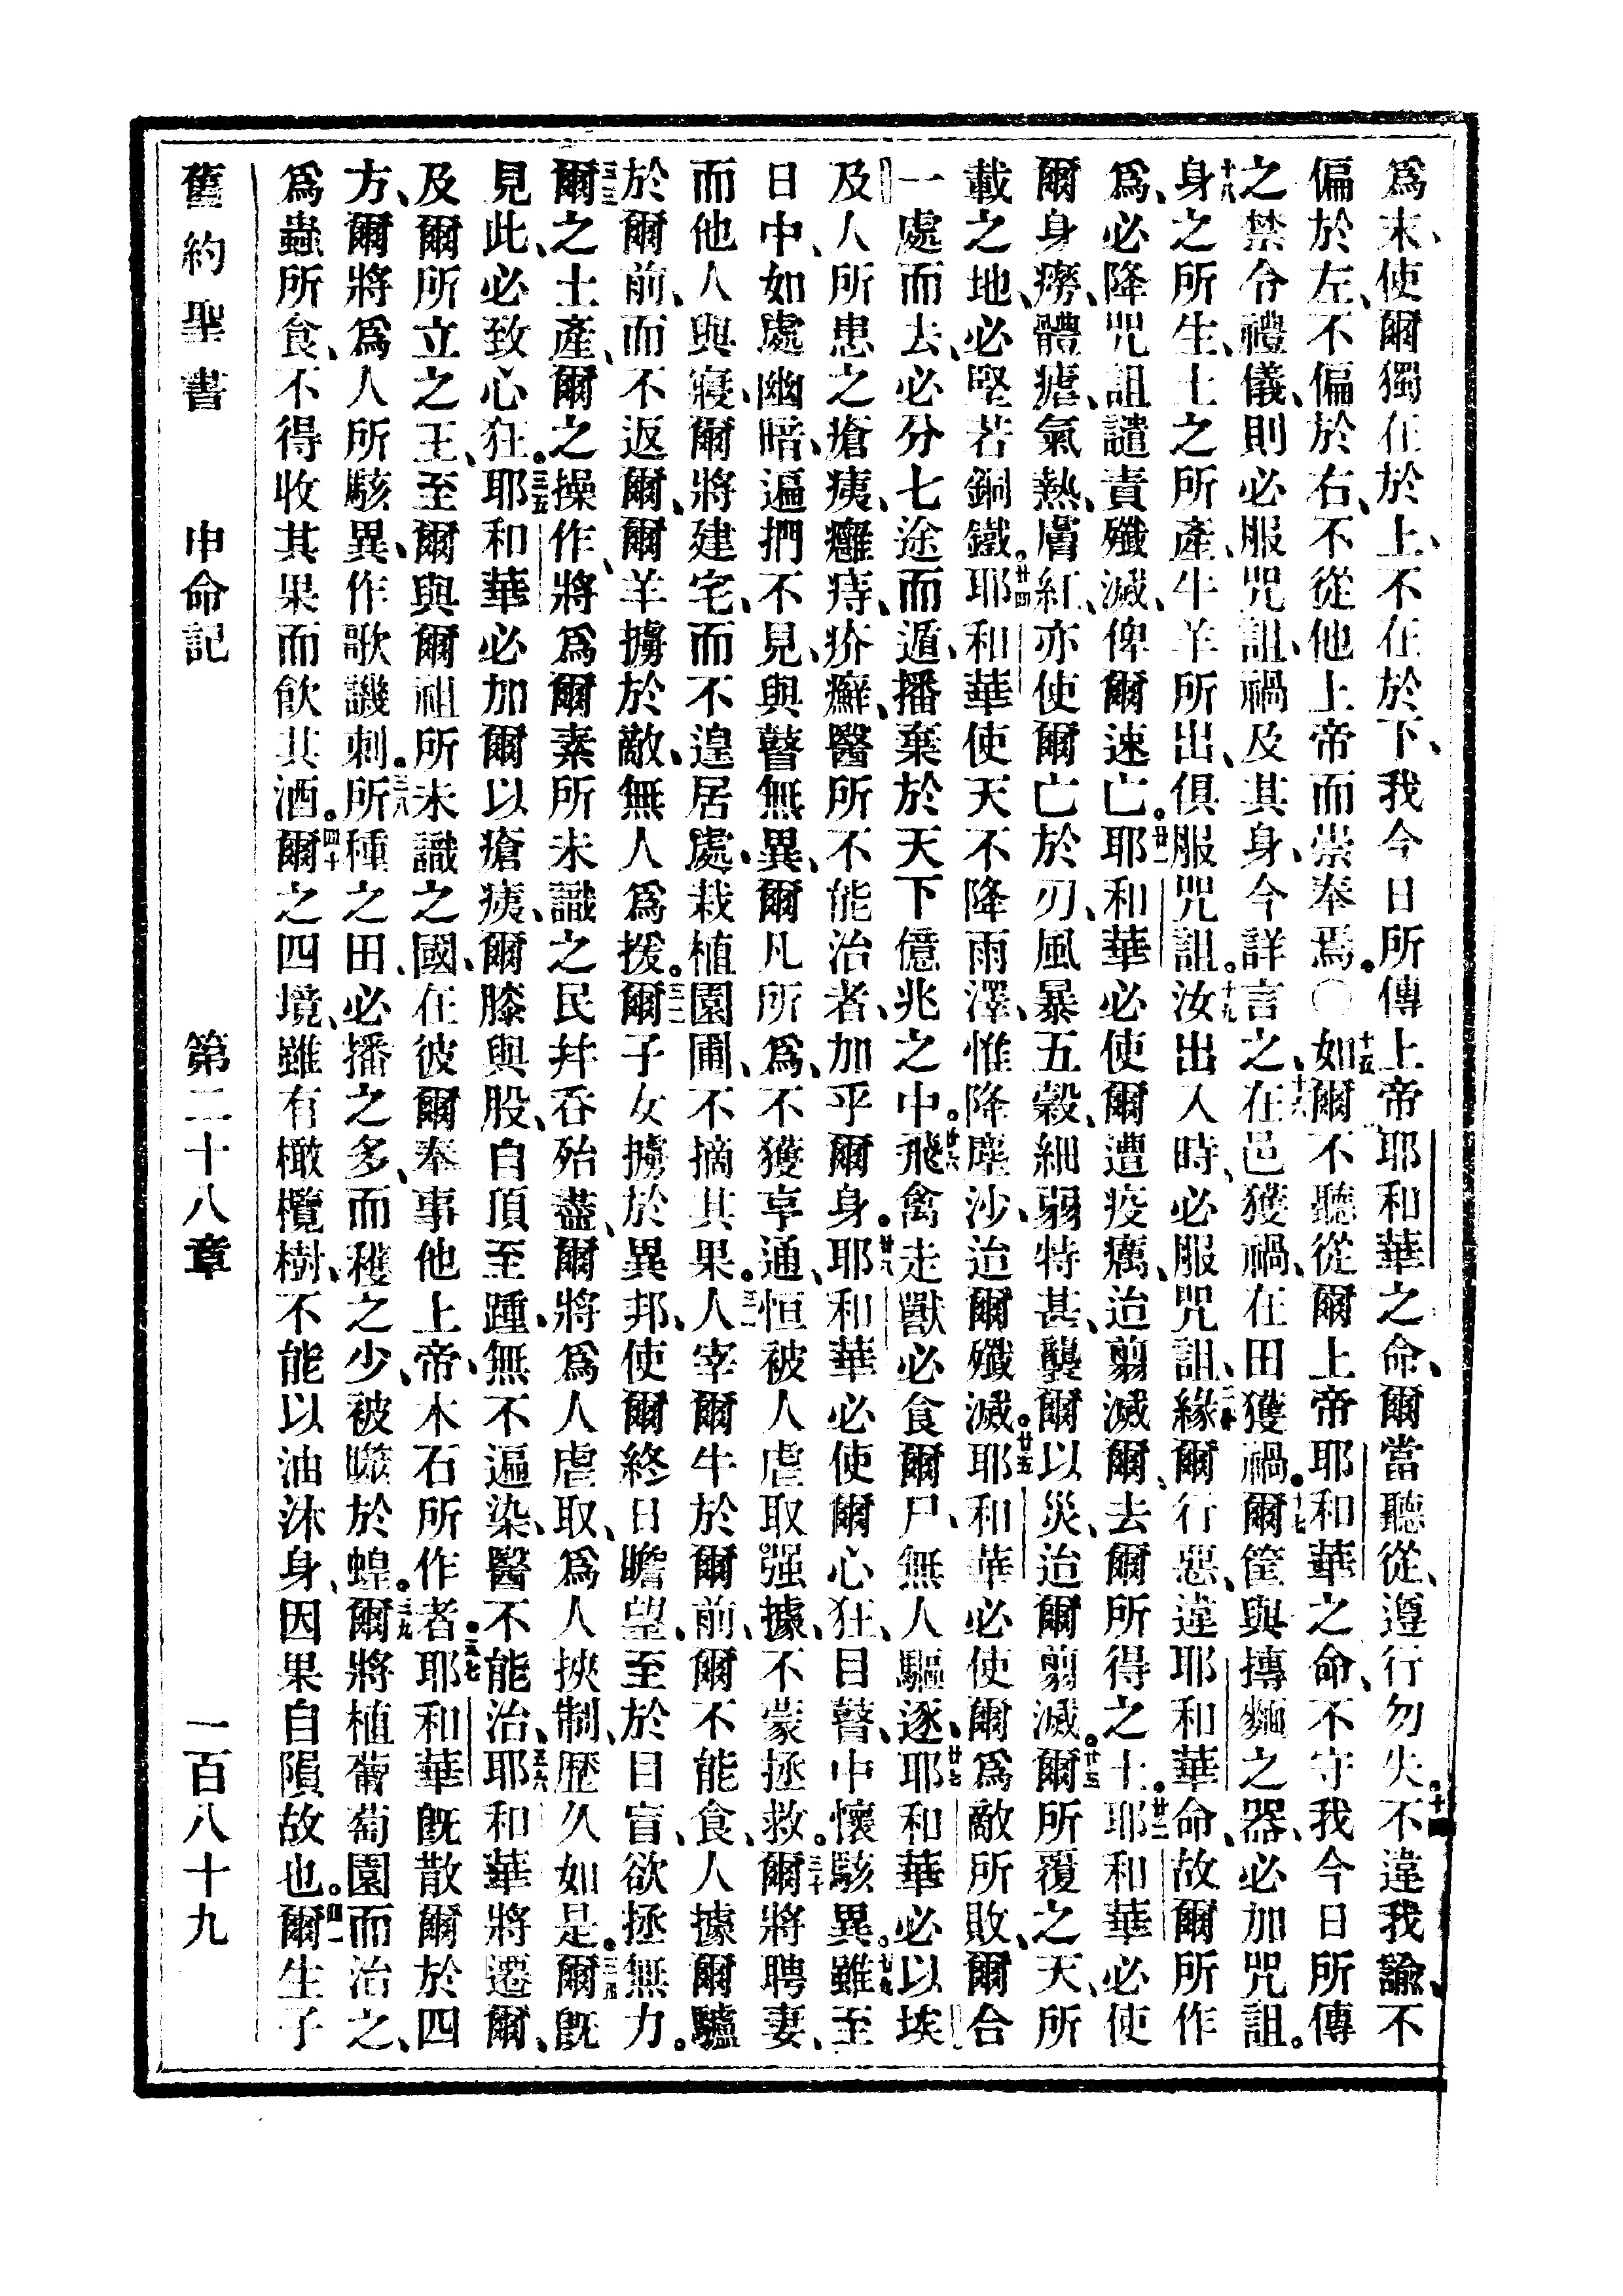 爲末、使爾獨在於上、不在於下、我今日所傳上帝耶和華之命、爾當聽從、遵行勿失。十四不違我諭、不
偏於左、不偏於右、不從他上帝而崇奉焉。〇十五如爾不聽從爾上帝耶和華之命、不守我今日所傳
之禁令禮儀、則必服咒詛、禍及其身、今詳言之、十六在邑獲禍、在田獲禍。十七爾筐與摶麵之器、必加咒詛。
十八身之所生、土之所產、牛羊所出、俱服咒詛。十九汝出入時、必服咒詛、二十緣爾行惡、違耶和華命、故爾所作
爲、必降咒詛譴責殲滅、俾爾速亡。廿一耶和華必使爾遭疫癘、迨翦滅爾、去爾所得之土。廿二耶和華必使
爾身癆、體瘧、氣熱、膚紅、亦使爾亡於刃、風暴五穀、細弱特甚、襲爾以災、迨爾翦滅。廿三爾所覆之天、所
載之地、必堅若銅鐵。廿四耶和華使天不降雨澤、惟降塵沙、迨爾殲滅。廿五耶和華必使爾爲敵所敗、爾合
一處而去、必分七途而遁、播棄於天下億兆之中。廿六飛禽走獸必食爾尸、無人驅逐、廿七耶和華必以埃
及人所患之瘡痍、癰痔、疥癬、醫所不能治者、加乎爾身。廿八耶和華必使爾心狂、目瞽、中懷駭異。廿九雖至
日中、如處幽暗、遍捫不見、與瞽無異、爾凡所爲、不獲享通、恒被人虐取强據、不蒙拯救。三十爾將聘妻、
而他人與寢、爾將建宅、而不遑居處、栽植園圃、不摘其果。三一人宰爾牛於爾前、爾不能食、人據爾驢
於爾前、而不返爾、爾羊擄於敵、無人爲援。三二爾子女擄於異邦、使爾終日瞻望、至於目盲、欲拯無力。
三三爾之土產、爾之操作、將爲爾素所未識之民幷呑殆盡、爾將爲人虐取、爲人挾制、歷久如是。三四爾旣
見此、必致心狂。三五耶和華必加爾以瘡痍、爾膝與股、自頂至踵、無不遍染、醫不能治、三六耶和華將遷爾、
及爾所立之王、至爾與爾祖所未識之國、在彼爾奉事他上帝、木石所作者。三七耶和華旣散爾於四
方、爾將爲人所駭異、作歌譏刺。三八所種之田、必播之多、而穫之少、被噬於蝗。三九爾將植葡萄園而治之、
爲蟲所食、不得收其果而飮其酒。四十爾之四境、雖有橄欖樹、不能以油沐身、因果自隕故也。四一爾生子
舊約聖書 申命記 第二十八章 一百八十九